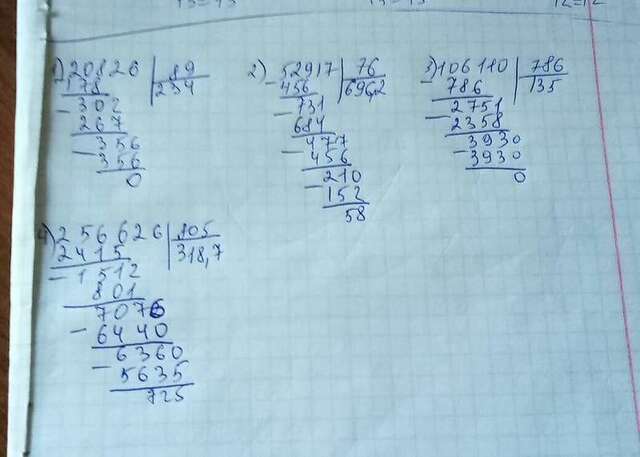 1) 20826 | 89
178 | 234
302
267
356
356
0
2) 52917 | 76
456 | 696,2
731
684
477
456
210
152
58
3) 106110 | 786
786 | 135
2751
2358
3930
3930
0
4) 256626 | 805
2415 | 318,7
1512
801
7076
6440
6360
5635
725